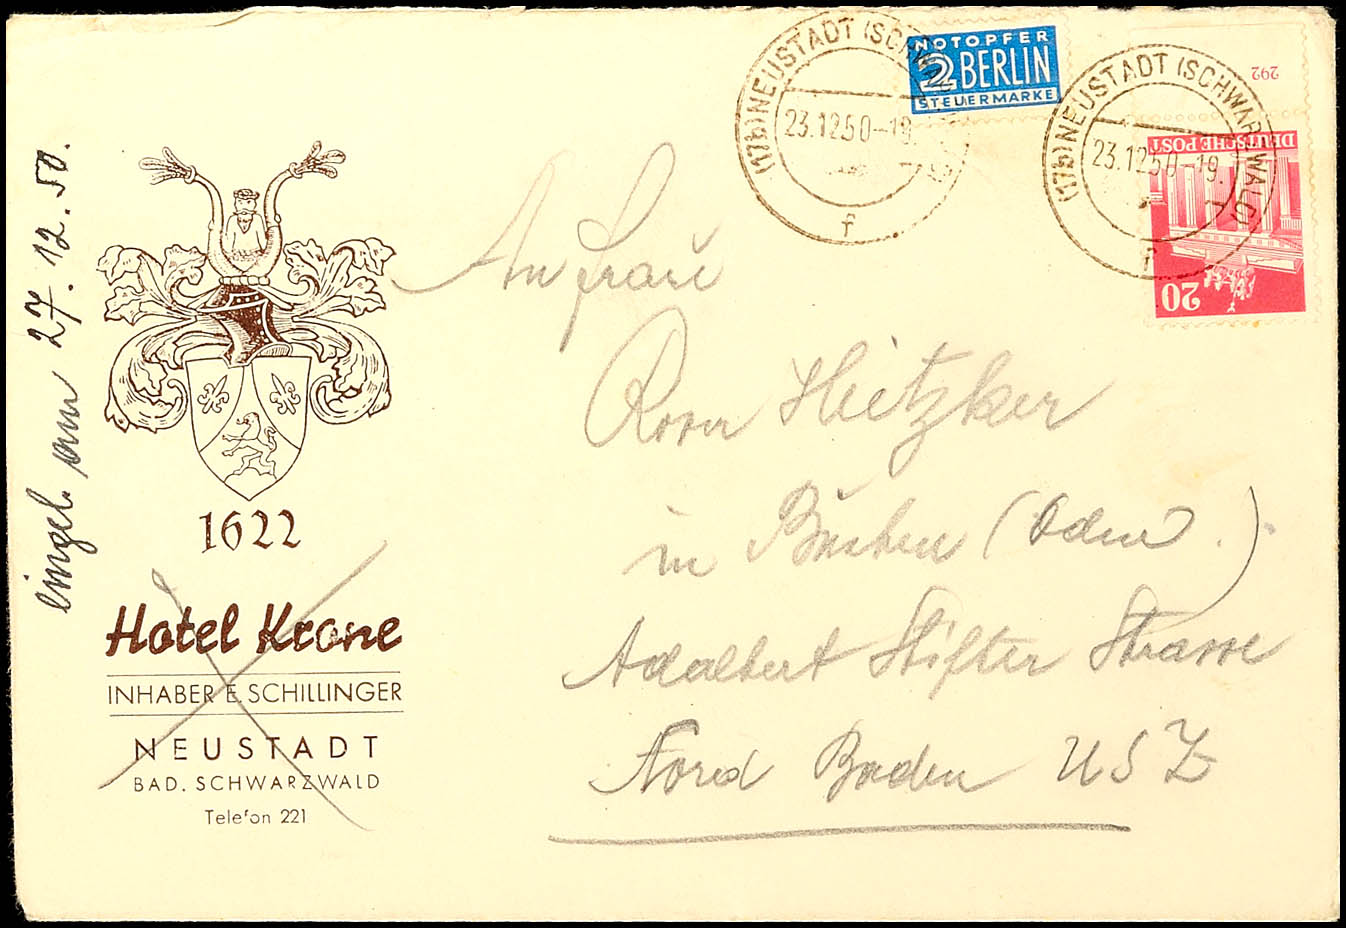 (17b) NEUSTADT (SCHWARZWALD)
23.12.50-19.
f
NOTOPFER
2 BERLIN
STEUERMARKE
(17b) NEUSTADT (SCHWARZWALD)
23.1250-19.
f
292
DEUTSCHE POST
20
eingel. am 27.12.50.
1622
Hotel Krone
INHABER E. SCHILLINGER
NEUSTADT
BAD. SCHWARZWALD
Telefon 221
An Frau
Rosa Hitzker
in Buchen (Odenw.)
Adalbert Stifter Strasse
Nord Baden USZ